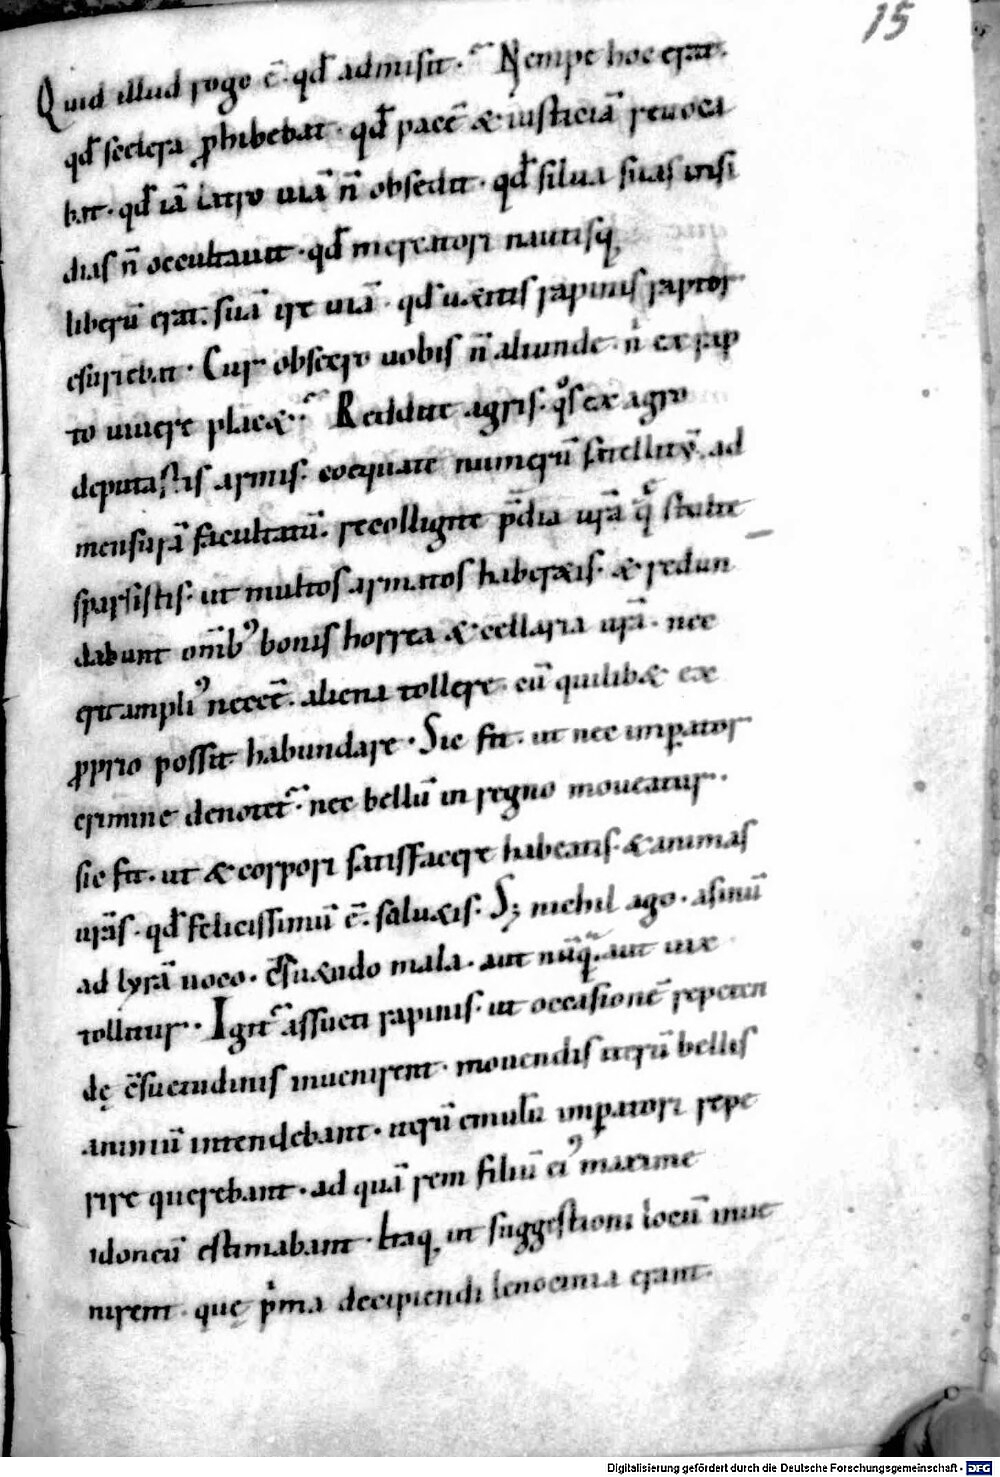 15
Quid illud rogo ē· qd̄ admisit· Nempe hoc erat·
qd̄ scelera ꝓhibebat· qd̄ pacē & iusticiā reuoca
bat· qd̄ iā latro uiā n̄ obsedit· qd̄ silua suas insi
dias n̄ occultauit· qd̄ mercatori nautisq;
liberū erat suā ire uiā· qd̄ uetitis rapinis raptor
esuriebat· Cur obsecro uobis n̄ aliunde n̊ ex rap
to uiuere plac&· Reddite agris· q̊s ex agro
deputastis armis· coequate numerū satellitū ad
mensurā facultatū· recolligite p̄dia ur̄a q̄ stulte
sparsistis· ut multos armatos haber&is· & redun
dabunt om̄ib; bonis horrea & cellaria ur̄a· nec
erit ampli᾽ necē· aliena tollere· cū quilib& ex
ꝓprio possit habundare· Sic fit· ut nec imꝑator
crimine denotet᷑· nec bellū in regno moueatur·
sic fit· ut & corpori satisfacere habeatis· & animas
ur̄as· qd̄ felicissimū ē· salu&is· S; nichil ago· asinū
ad lyrā uoco· c̄su&udo mala· aut nūq̄· aut uix
tollitur· Igit᷑ assueti rapinis· ut occasionē repeten
dę c̄suetudinis inuenirent· mouendis iterū bellis
animū intendebant· iterū emulū imꝑatori repe
rire querebant· ad quā rem filiū ei᾽ maxime
idoneū estimabant· Itaq; ut suggestioni locū inue
nirent· quę p̊ma decipiendi lenocinia erant·
Digitalisierung gefördert durch die Deutsche Forschungsgemeinschaft - DFG